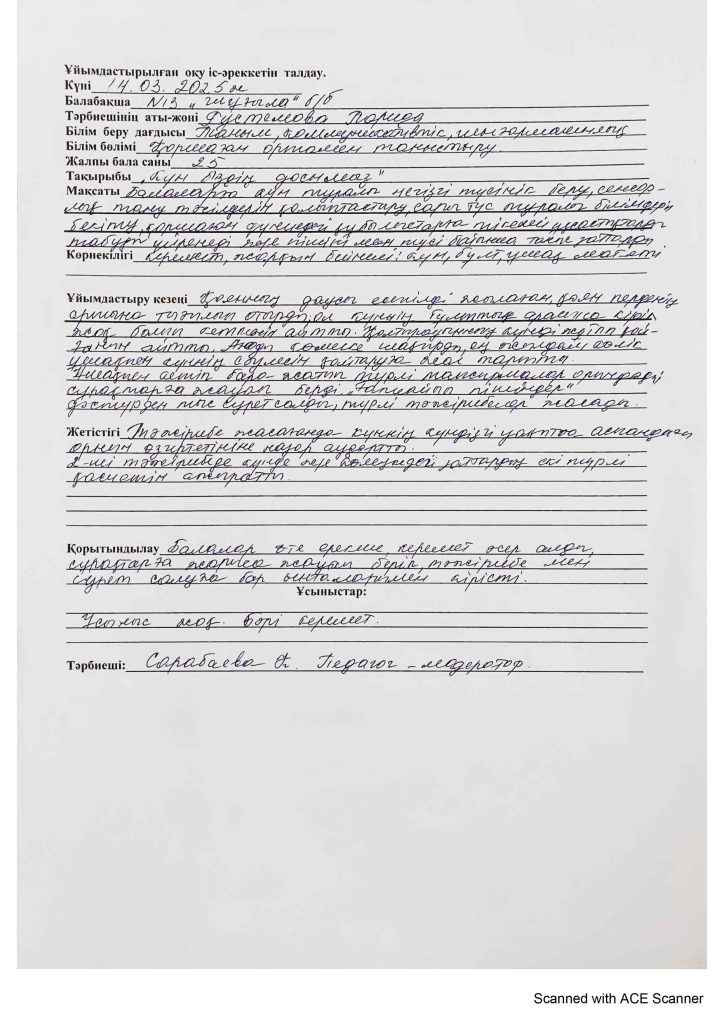 Ұйымдастырылған оқу іс-әреккетін талдау.
Күні 14.03.2025ж
Балабақша N13 „Шұғыла" б/б
Тәрбиешінің аты-жөні Рүстемова Парида
Білім беру дағдысы Таным, коммуникативтік, шығармашылық
Білім бөлімі Қоршаған ортамен таныстыру
Жалпы бала саны 25
Тақырыбы „Күн біздің досымыз"
Мақсаты Балаларға күн туралы негізгі түсінік беру, сенсор-
лық тану тәсілдерін қалыптастыру, сары түс туралы білімдерін
бекіту, қоршаған дүниедегі құбылыстарға тікелей ұқсастықтарды
табуды үйренеді және пішіні мен түсі бойынша тиісті заттарды
Көрнекілігі керемет, жарқын бейнелі: күн, бұлт, ұшақ макеті
Ұйымдастыру кезеңі Қоянның даусы естіледі жылаған, қоян перденің
артына тығылып отырды, ол күннің бұлттың арасына кіріп
жоқ болып кеткенін айтты. Қолтырауынның күнді жұтып қой-
ғанын айтты. Аңды көмекке шақырды, ең жылдам көлік
ұшақпен күннің сәулесін қайтаруға жол тартты.
Ұшақпен кетіп бара жатып түрлі тапсырмалар орындады
сұрақтарға жауап берді. „Ғажайып пішіндер"
дәстүрден тыс сурет салды, түрлі тәжірибелер жасады.
Жетістігі Тәжірибе жасағанда күннің күндізгі уақытта аспандағы
орнын өзгертетініне назар аудартты.
2-ші тәжірибеде күнде және көлеңкедегі заттардың екі түрлі
қасиетін аңғартты.
Қорытындылау Балалар өте ерекше, керемет әсер алды,
сұрақтарға жақсы жауап беріп, тәжірибе мен
сурет салуға бар ынталарымен кірісті.
Ұсыныстар:
Ұсыныс жоқ. Бәрі керемет.
Тәрбиеші: Сарабаева Ф. Педагог-модератор.
Scanned with ACE Scanner